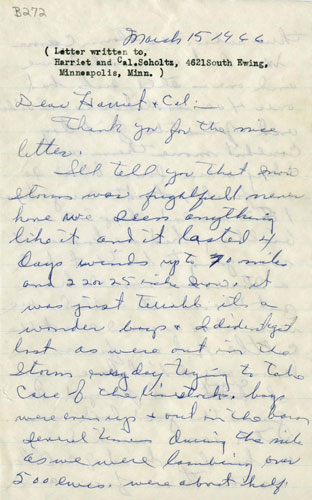 B272
March 15 1966
( Letter written to,
Harriet and Cal.Scholtz, 4621South Ewing,
Minneapolis, Minn. )
Dear Harriet & Cal:-
Thank you for the nice
letter.
I'll tell you that snow
storm was frightfull never
have we seen anything
like it and it lasted 4
days winds up to 70 miles
and 22 or 25 inch snow. it
was just terrable its a
wonder boys & I didn't get
lost as were out in the
storm everyday trying to take
care of the livestock. boys
were even up & out in the barn
several times during the nite
as we were lambing over
500 ewes. were about half